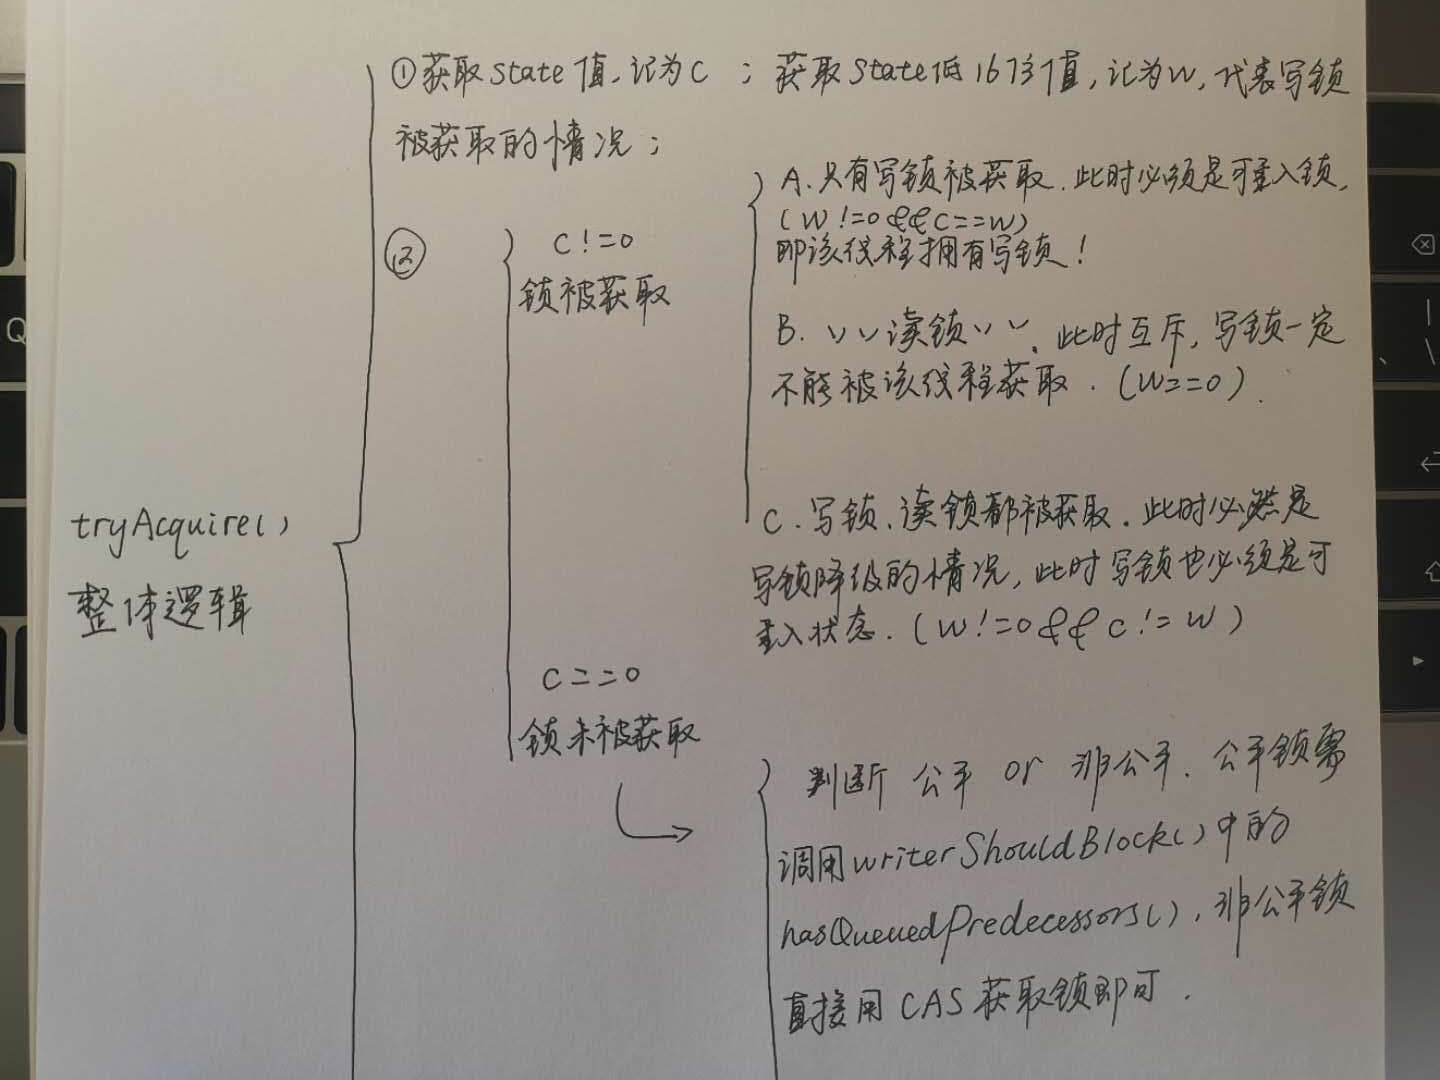 ①获取state值,记为c ; 获取state低16位值,记为w,代表写锁
被获取的情况;
②
c!=0
锁被获取
A.只有写锁被获取.此时必须是可重入锁,
(w!=0&&c==w)
即该线程拥有写锁!
B. 丷丷读锁丷丷.此时互斥,写锁一定
不能被该线程获取.(w==0).
C.写锁、读锁都被获取.此时必然是
写锁降级的情况,此时写锁也必须是可
重入状态.(w!=0&&c!=w)
tryAcquire()
整体逻辑
c==0
锁未被获取
判断 公平 or 非公平. 公平锁需
调用writerShouldBlock()中的
hasQueuedPredecessors(),非公平锁
直接用CAS获取锁即可.
Q